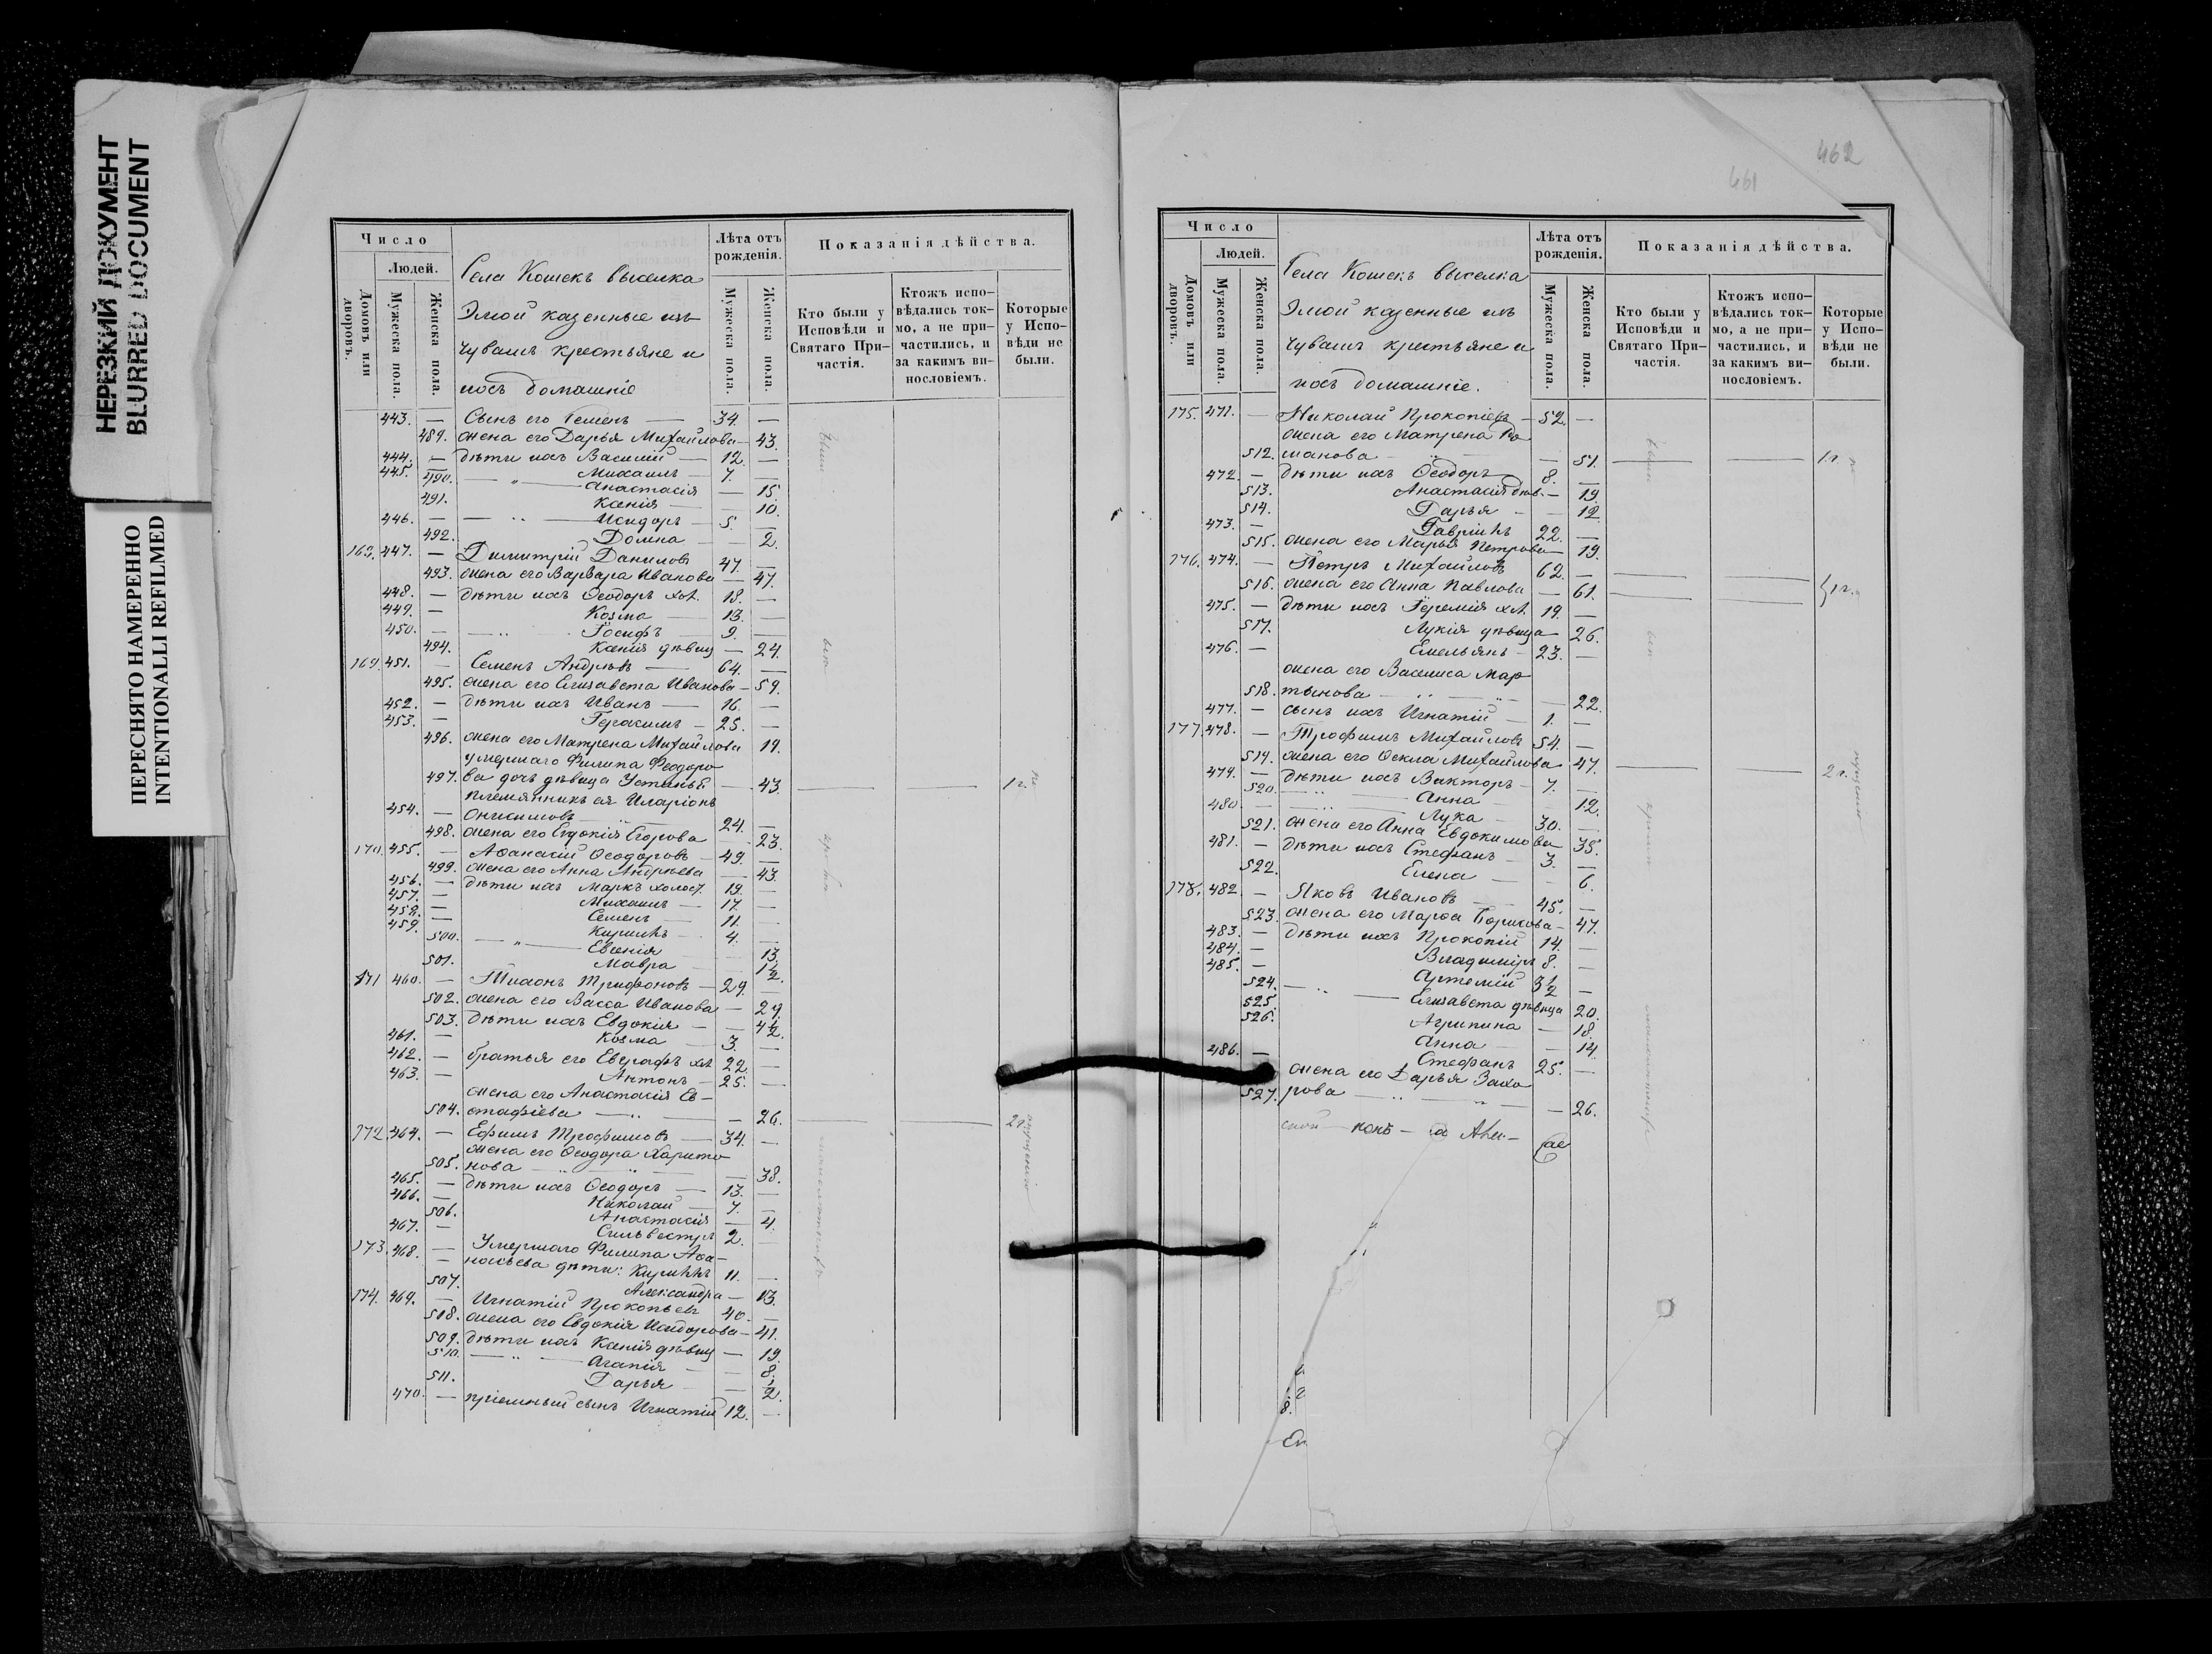 НЕРЕЗКИЙ ДОКУМЕНТ
BLURRED DOCUMENT
ПЕРЕСНЯТО НАМЕРЕННО
INTENTIONALLI REFILMED
Число
Людей.
Домовъ или дворовъ.
Мужеска пола.
Женска пола.
Села Кошекъ выселка
Элмой казенные изъ
Чувашъ крестьяне и
ихъ домашніе
Лѣта отъ рожденія.
Мужеска пола.
Женска пола.
Показанія дѣйства.
Кто были у Исповѣди и Святаго Причастія.
Ктожъ исповѣдались токмо, а не причастились, и за какимъ винословіемъ.
Которые у Исповѣди не были.
443. — Сынъ его Семенъ — 34. —
489. жена его Дарья Михайлова — 43.
444. — дѣти ихъ Василій — 12. —
445. — Михаилъ — 7. —
490. — „ — Анастасія — 15.
491. Ксенія — 10.
446. — — „ — Исидоръ — 5. —
492. Домна — 2.
168. 447. — Димитрій Даниловъ 47. —
493. жена его Варвара Иванова — 47.
448. — дѣти ихъ Ѳеодоръ хол. 18. —
449. — Козма — 13. —
450. — — „ — Іосифъ — 9. —
494. Ксенія дѣвиц — 24.
169. 451. — Семенъ Андрѣевъ — 64. —
495. жена его Елизавета Иванова — 59.
452. — дѣти ихъ Иванъ — 16. —
453. — Герасимъ — 25. —
496. жена его Матрена Михайлова 19.
умершаго Филипа Феодоро
497. ва дочь дѣвица Устинья — 43. — — 1 г.
племянникъ ея Иларіонъ
454. — Онисимовъ „ 24. —
498. жена его Евдокія Егорова — 23.
170. 455. — Аѳанасій Ѳеодоровъ — 49. —
499. жена его Анна Андрѣева — 43.
456. — дѣти ихъ Маркъ холост. 19. —
457. — Михаилъ — 17. —
458. — Семенъ — 11. —
459. — Кириллъ — 4. —
500. — „ — Евгенія — 13.
501. Мавра — 1/2
171 460. — Тихонъ Трифоновъ — 29. —
502. жена его Васса Иванова — 29.
503. дѣти ихъ Евдокія — — 4 1/2.
461. — Козма — 3. —
462. — братья его Евграфъ хол. 22. —
463. — Антонъ — 25. —
жена его Анастасія Ев-
504. стафіева — „ — — 26. — — 2 г.
172. 464. — Ефимъ Трофимовъ — 34. —
жена его Ѳеодора Харито
505. нова — „ — „ — 38.
465. — дѣти ихъ Ѳеодоръ — 13. —
466. — Николай — 7. —
506. Анастасія — 4.
467. — Сильвестръ 2. —
173. 468. — Умершаго Филипа Аѳа-
— насьева дѣти: Кириллъ 11. —
507. Александра — 13.
174. 469. — Игнатій Прокопьевъ 40. —
508. жена его Евдокія Исидорова — 41.
509. дѣти ихъ Ксенія дѣвиц — 19.
510. — „ — Агапія — — 8.
511. Дарья — 1/2.
470. — пріемный сынъ Игнатій 12. —
461
462
Число
Людей.
Домовъ или дворовъ.
Мужеска пола.
Женска пола.
Села Кошекъ выселка
Элмой казенные изъ
Чувашъ крестьяне и
ихъ домашніе.
Лѣта отъ рожденія.
Мужеска пола.
Женска пола.
Показанія дѣйства.
Кто были у Исповѣди и Святаго Причастія.
Ктожъ исповѣдались токмо, а не причастились, и за какимъ винословіемъ.
Которые у Исповѣди не были.
175. 471. — Николай Прокопіевъ — 52. —
жена его Матрена Ро
512. манова — „ — 51. — — 1 г.
472. — дѣти ихъ Ѳеодоръ — 8. —
513. Анастасія дѣв. — 19.
514. Дарья — — 12.
473. — Гавріилъ 22. —
515. жена его Марья Петрова — 19.
176. 474. — Петръ Михайловъ 62. —
516. жена его Анна Павлова — 61. — — 1 г.
475. — дѣти ихъ Іеремія хол. 19. —
517. Лукія дѣвица — 26.
476. — Емельянъ — 23. —
жена его Василиса Мар
518. тынова — „ — „ — 22.
477. — сынъ ихъ Игнатій — 1. —
177. 478. — Трофимъ Михайловъ 54. —
519. жена его Ѳекла Михайлова — 47. — — 2 г.
479. — дѣти ихъ Викторъ — 7. —
520. — „ — Анна — 12.
480. — — „ — Лука — 30. —
521. жена его Анна Евдокимова — 35.
481. — дѣти ихъ Стефанъ — 3. —
522. Елена — — 6.
178. 482. — Яковъ Ивановъ — 45. —
523. жена его Марѳа Борисова — 47.
483. — дѣти ихъ Прокопій 14. —
484. — Владиміръ 8. —
485. — Артемій 3 1/2 —
524. — „ — Елизавета дѣвица 20.
525. Агрипина — 18.
526. Анна — — 14.
486. — Стефанъ 25. —
жена его Дарья Заха
527. рова — „ — „ — 26.